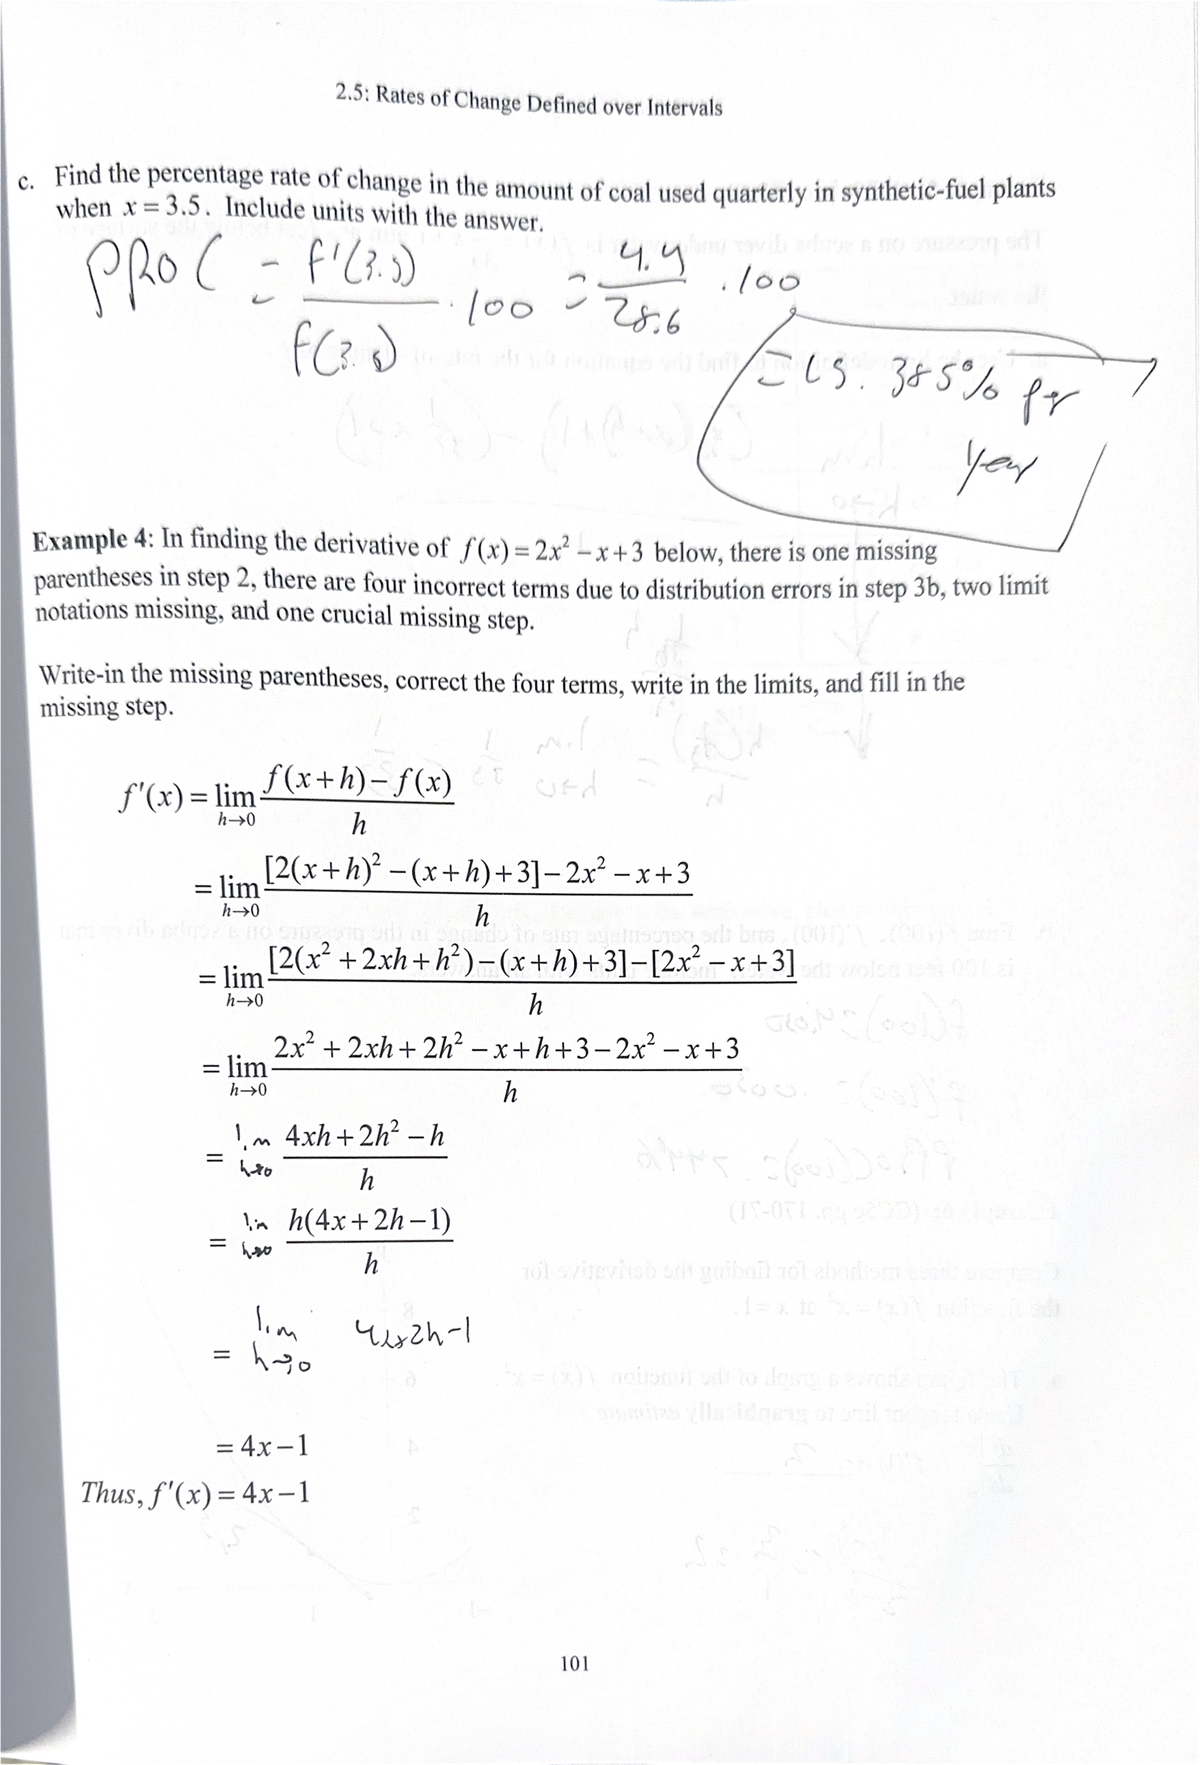 2.5: Rates of Change Defined over Intervals
c. Find the percentage rate of change in the amount of coal used quarterly in synthetic-fuel plants
when x = 3.5. Include units with the answer.
PROC = f'(3.5) / f(3.5) · 100 = 4.4 / 28.6 · 100
= 15.385% per
year
Example 4: In finding the derivative of f(x) = 2x² − x + 3 below, there is one missing
parentheses in step 2, there are four incorrect terms due to distribution errors in step 3b, two limit
notations missing, and one crucial missing step.
Write-in the missing parentheses, correct the four terms, write in the limits, and fill in the
missing step.
f'(x) = lim h→0 f(x+h) − f(x) / h
= lim h→0 [2(x+h)² − (x+h) + 3] − 2x² − x + 3 / h
= lim h→0 [2(x² + 2xh + h²) − (x+h) + 3] − [2x² − x + 3] / h
= lim h→0 2x² + 2xh + 2h² − x + h + 3 − 2x² − x + 3 / h
= lim h→0 4xh + 2h² − h / h
= lim h→0 h(4x + 2h − 1) / h
= lim h→0 4x+2h−1
= 4x − 1
Thus, f'(x) = 4x − 1
101